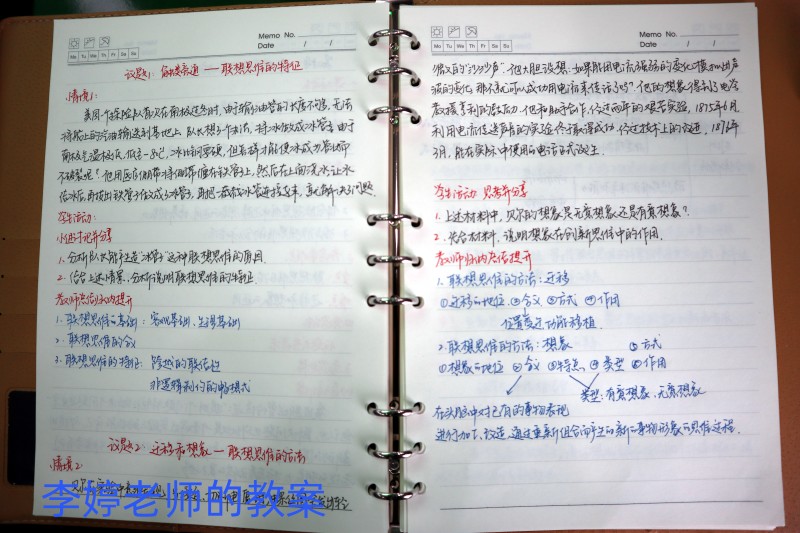 Memo No.
Date / /
Mo Tu We Th Fr Sa Su
议题1: 触类旁通 —— 联想思维的特征
情境1:
美国一个探险队首次在南极过冬时,由于输油管的长度不够,无法
将船上的汽油输送到基地上,队长想了个办法,将冰做成冰管子,由于
南极气温极低,
学生活动:
小组讨论并分享
1. 分析队长能产生造“冰管子”这种联想思维的原因.
2. 结合上述情景,分析说明联想思维的特征
教师总结归纳提升
1. 联想思维的基础: 客观基础、生理基础
2. 联想思维的含义
3. 联想思维的特征: 跨越的联结性
非逻辑制约的畅想式
议题2: 迁移和想象 — 联想思维的方法
情境2:
李婷老师的教案
Memo No.
Date / /
Mo Tu We Th Fr Sa Su
微弱的“沙沙声”. 他大胆设想: 如果能用电流强弱的变化模拟出声
波的变化, 那不就可以成功用电流来传话了吗? 他的想象得到了电学
家亨利的鼓励, 他和助手合作, 经过两年的艰苦实验, 1875年6月
利用电流传送声音的实验终于取得成功, 经过技术上的改进, 1876年
3月, 能在实际中使用的电话正式诞生.
学生活动 思考并分享
1. 上述材料中, 贝尔的想象是无意想象还是有意想象?
2. 结合材料, 说明想象在创新思维中的作用.
教师归纳总结提升
1. 联想思维的方法: 迁移
①迁移的地位 ②含义 ③方式 ④作用
位置变迁功能移植.
2. 联想思维的方法: 想象 ⑤方式
①想象的地位 ②含义 ③特点 ④类型 ⑥作用
类型: 有意想象、无意想象
在头脑中对已有的事物表现
进行加工、改造, 通过重新组合而产生的新的事物形象的思维过程.